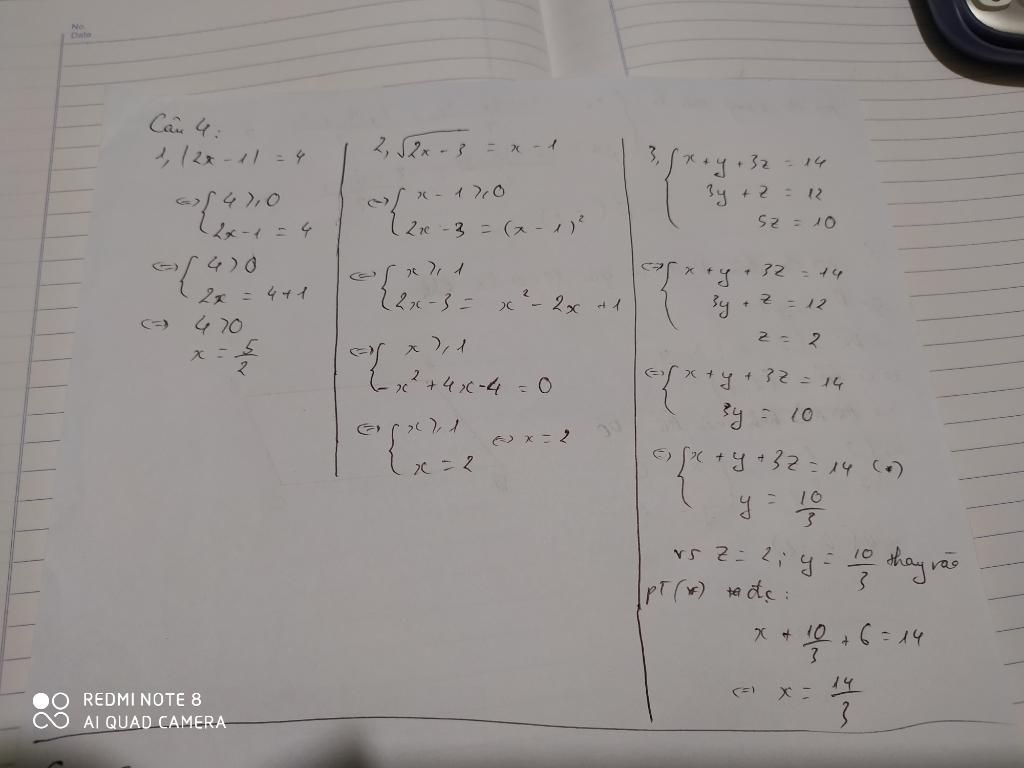 No.
Date
Câu 4:
1, |2x - 1| = 4
⇔ { 4 ⩾ 0
2x - 1 = 4
⇔ { 4 > 0
2x = 4 + 1
⇔ 4 > 0
x = 5/2
2, √(2x - 3) = x - 1
⇔ { x - 1 ⩾ 0
2x - 3 = (x - 1)²
⇔ { x ⩾ 1
2x - 3 = x² - 2x + 1
⇔ { x ⩾ 1
-x² + 4x - 4 = 0
⇔ { x ⩾ 1 ⇔ x = 2
x = 2
3, { x + y + 3z = 14
3y + z = 12
5z = 10
⇔ { x + y + 3z = 14
3y + z = 12
z = 2
⇔ { x + y + 3z = 14
3y = 10
⇔ { x + y + 3z = 14 (*)
y = 10/3
vs z = 2; y = 10/3 thay vào
pT (*) đc:
x + 10/3 + 6 = 14
⇔ x = 14/3
REDMI NOTE 8
AI QUAD CAMERA